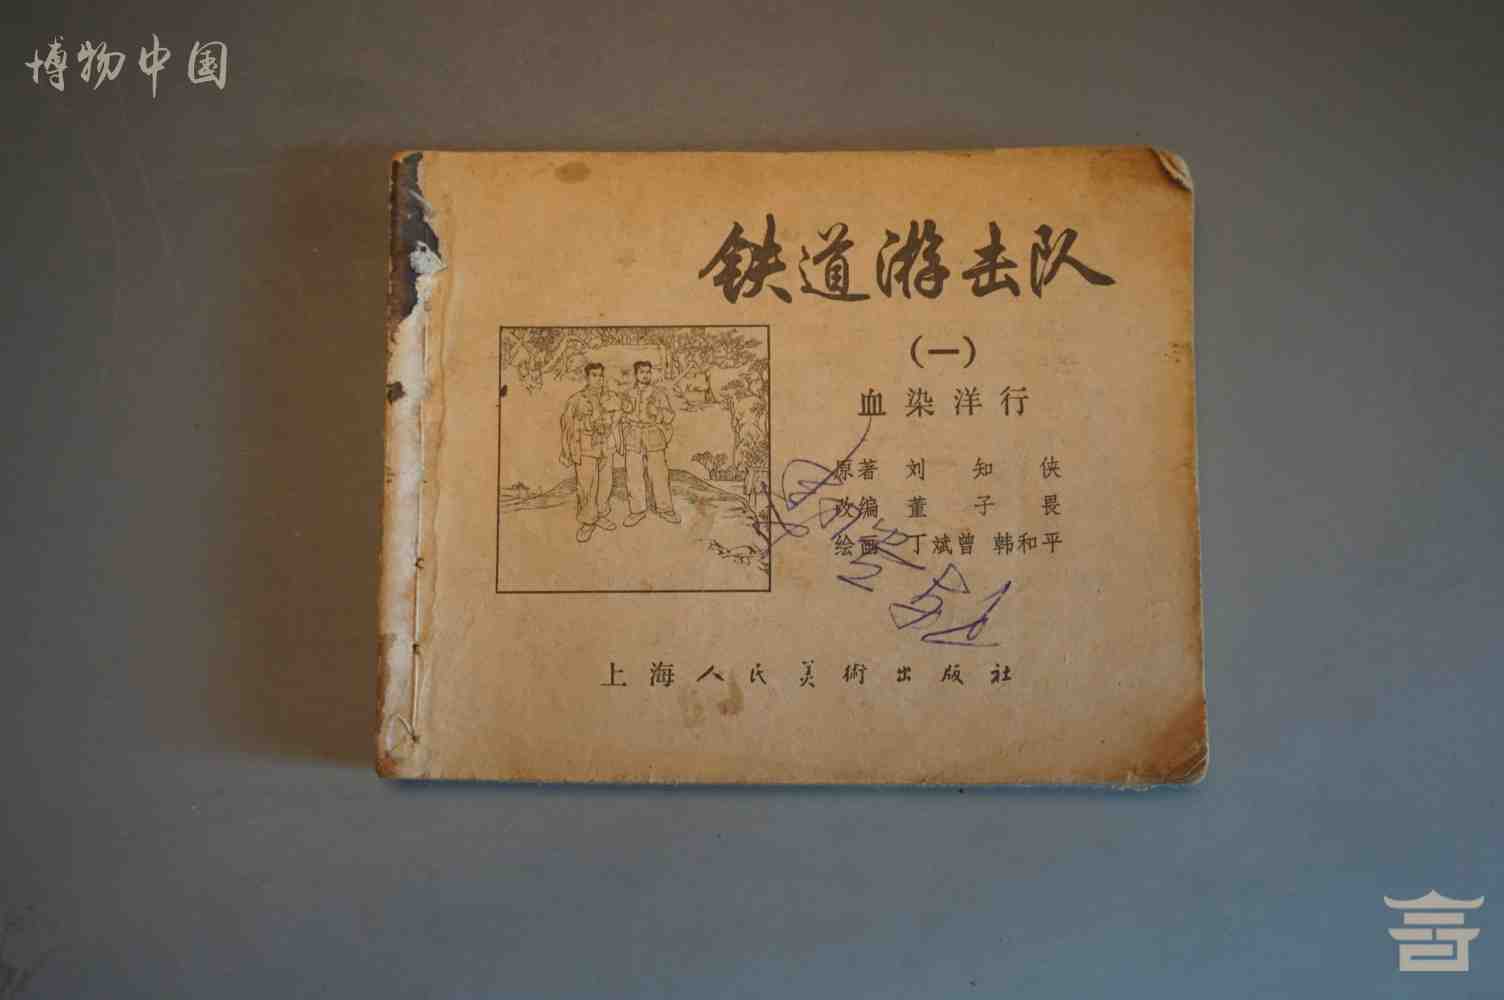 博物中国
铁道游击队
(一)
血染洋行
原著 刘知侠
改编 董子畏
绘画 丁斌曾 韩和平
上海人民美術出版社